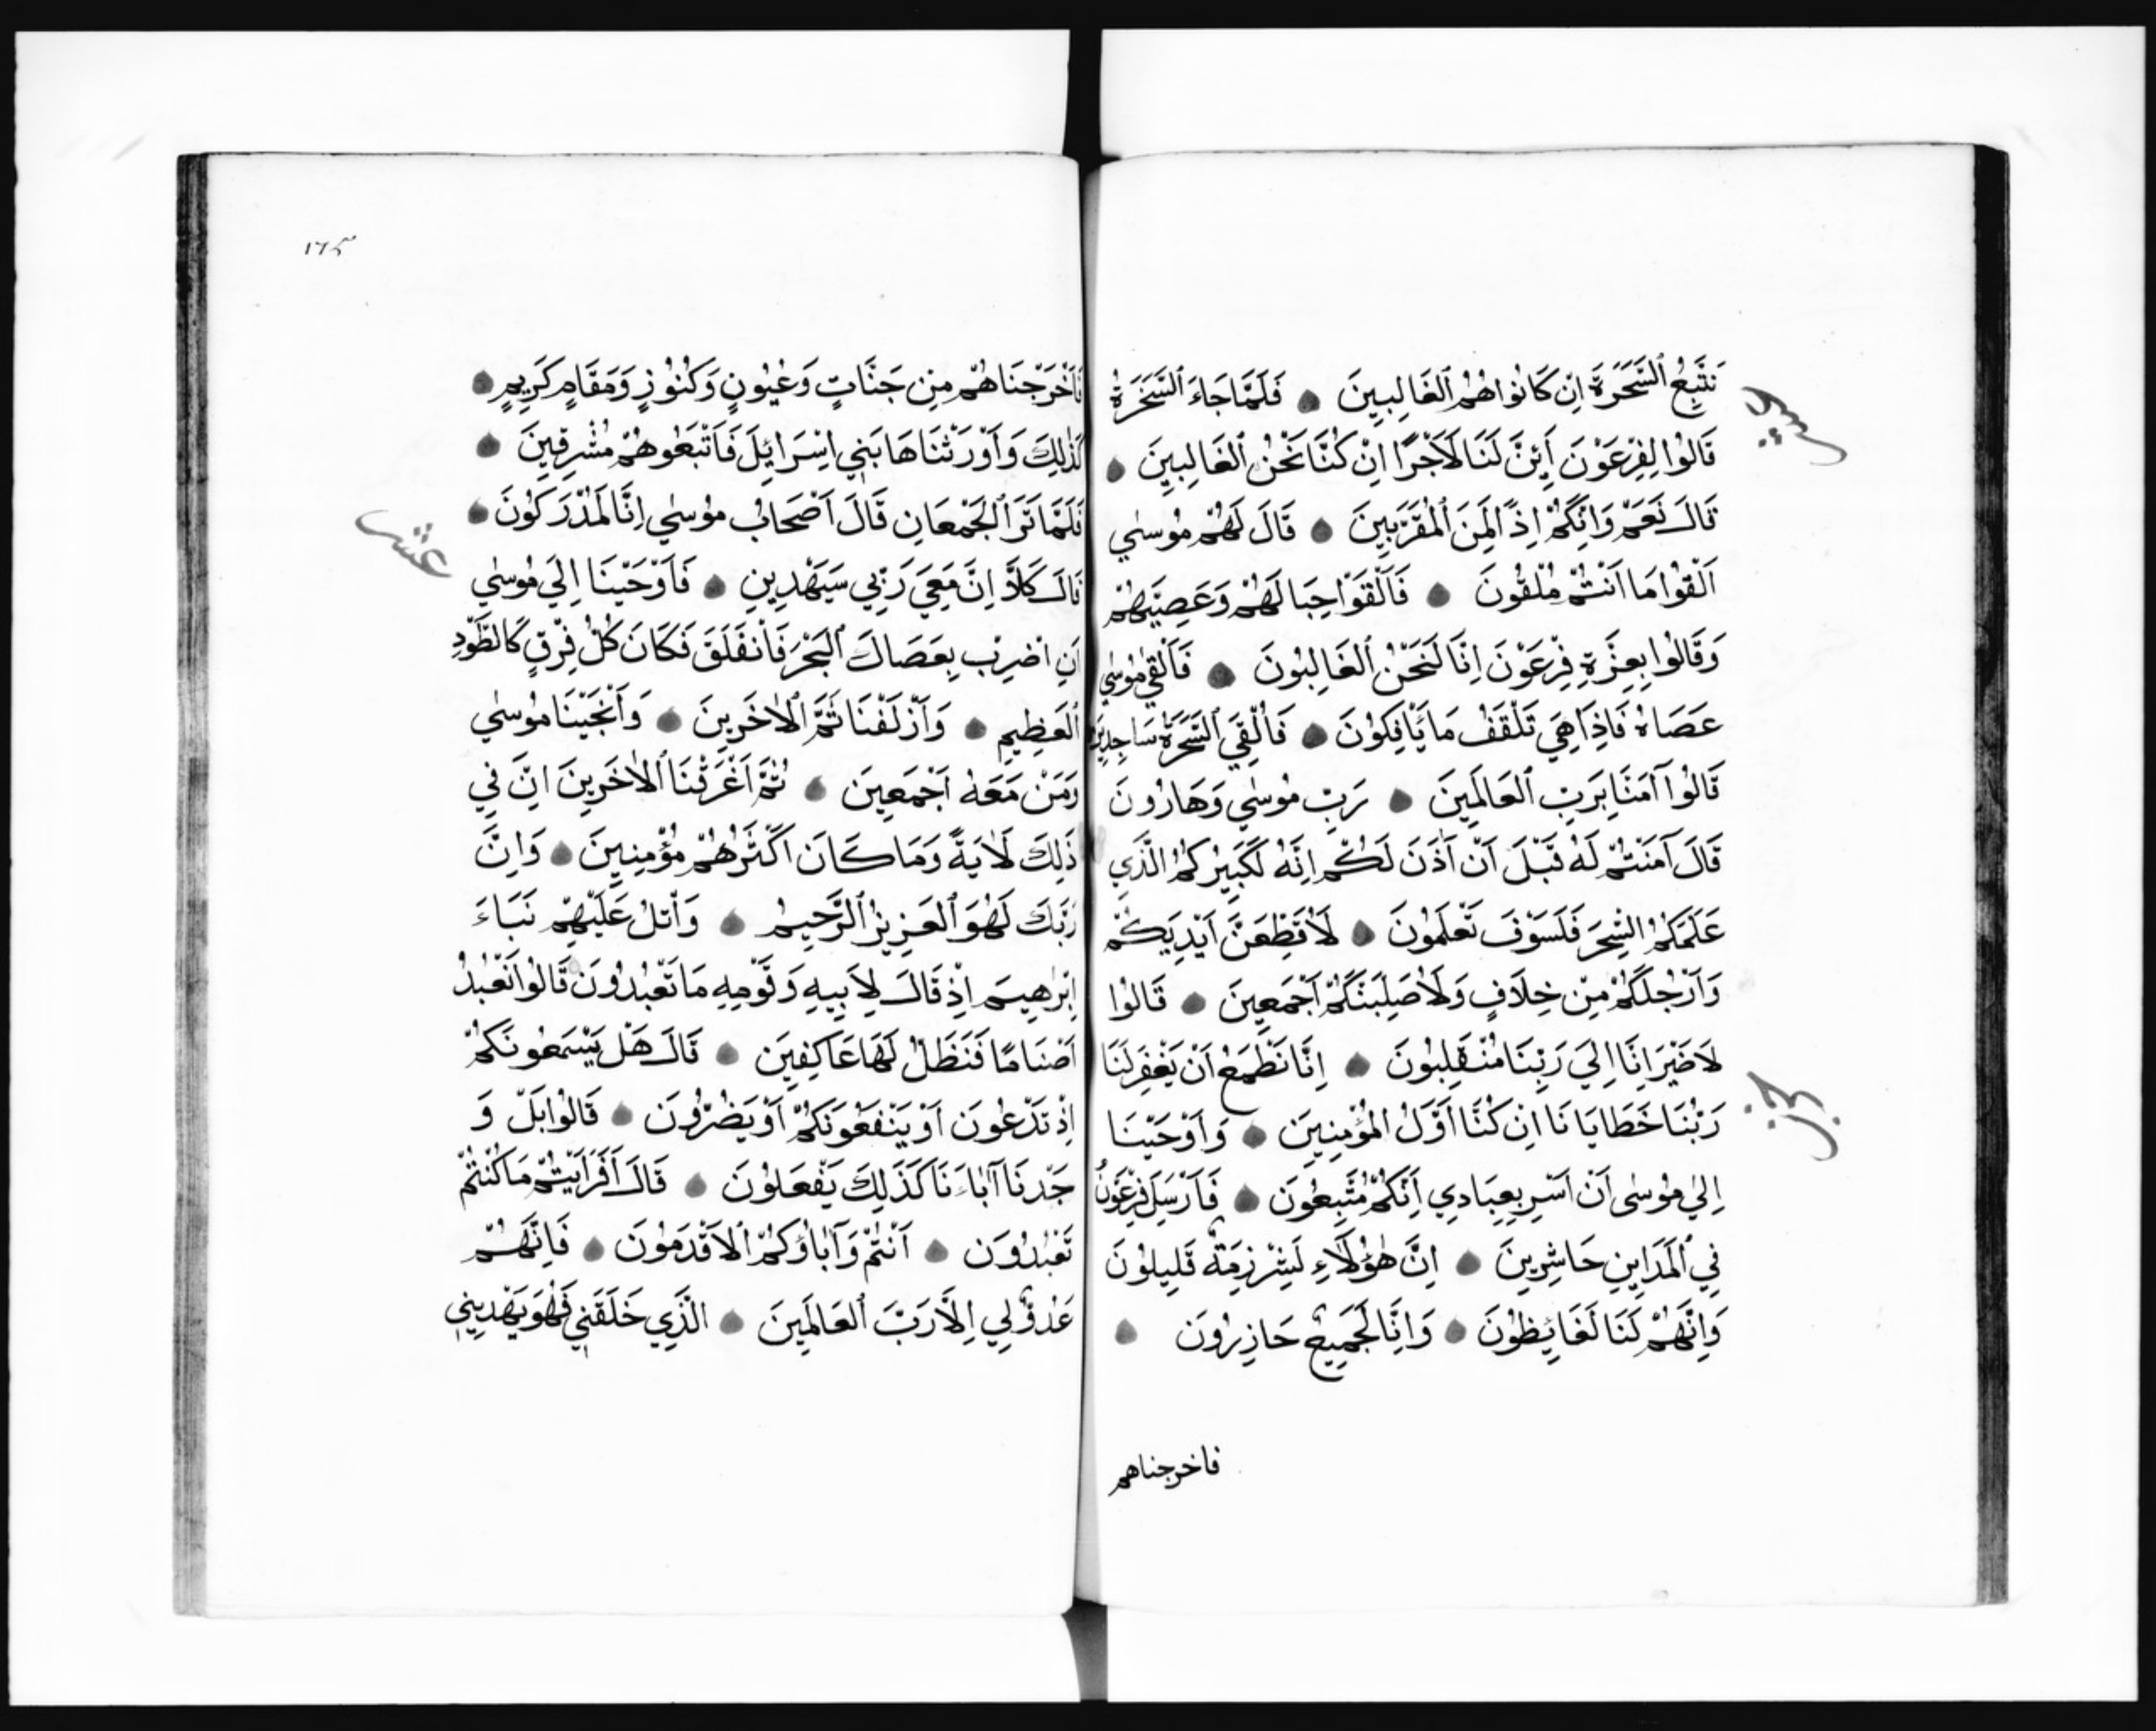 نَتَّبِعُ ٱلسَّحَرَةَ اِنْ كَانُوا هُمُ ٱلغَالِبِينَ فَلَمَّا جَاءَ ٱلسَّحَرَةُ
قَالُوا لِفِرْعَوْنَ أَئِنَّ لَنَا لَاَجْرًا اِنْ كُنَّا نَحْنُ ٱلغَالِبِينَ
قَالَ نَعَمْ وَاِنَّكُمْ اِذًا لَمِنَ ٱلمُقَرَّبِينَ قَالَ لَهُمْ مُوسٰي
اَلْقُوا مَا اَنْتُمْ مُلْقُونَ فَاَلْقَوْا حِبَالَهُمْ وَعَصِيَّهُمْ
وَقَالُوا بِعِزَّةِ فِرْعَوْنَ اِنَّا لَنَحْنُ ٱلغَالِبُونَ فَاَلْقٰي مُوسٰي
عَصَاهُ فَاِذَا هِيَ تَلْقَفُ مَا يَأْفِكُونَ فَاُلْقِيَ ٱلسَّحَرَةُ سَاجِدِينَ
قَالُوا آمَنَّا بِرَبِّ ٱلعَالَمِينَ رَبِّ مُوسٰي وَهَارُونَ
قَالَ آمَنْتُمْ لَهُ قَبْلَ اَنْ آذَنَ لَكُمْ اِنَّهُ لَكَبِيرُكُمُ الَّذِي
عَلَّمَكُمُ السِّحْرَ فَلَسَوْفَ تَعْلَمُونَ لَاُقَطِّعَنَّ اَيْدِيَكُمْ
وَاَرْجُلَكُمْ مِنْ خِلَافٍ وَلَاُصَلِّبَنَّكُمْ اَجْمَعِينَ قَالُوا
لَا ضَيْرَ اِنَّا اِلَيٰ رَبِّنَا مُنْقَلِبُونَ اِنَّا نَطْمَعُ اَنْ يَغْفِرَ لَنَا
رَبُّنَا خَطَايَانَا اِنْ كُنَّا اَوَّلُ المُؤْمِنِينَ وَاَوْحَيْنَا
اِلٰي مُوسٰي اَنْ اَسْرِ بِعِبَادِي اِنَّكُمْ مُتَّبِعُونَ فَاَرْسَلَ فِرْعَوْنُ
فِي ٱلمَدَاينِ حَاشِرِينَ اِنَّ هٰؤُلَاءِ لَشِرْزِمَةٌ قَلِيلُونَ
وَاِنَّهُمْ لَنَا لَغَائِظُونَ وَاِنَّا لَجَمِيعٌ حَاذِرُونَ
فاخرجناهم
حزب
١٦٥
فَاَخْرَجْنَاهُمْ مِنْ جَنَّاتٍ وَعُيُونٍ وَكُنُوزٍ وَمَقَامٍ كَرِيمٍ
كَذٰلِكَ وَاَوْرَثْنَاهَا بَنِي اِسْرَائِلَ فَاَتْبَعُوهُمْ مُشْرِقِينَ
فَلَمَّا تَرَا ٱلجَمْعَانِ قَالَ اَصْحَابُ مُوسٰي اِنَّا لَمُدْرَكُونَ
عشر
قَالَ كَلَّا اِنَّ مَعِيَ رَبِّي سَيَهْدِينِ فَاَوْحَيْنَا اِلَيٰ مُوسٰي
اَنِ اضْرِبْ بِعَصَاكَ ٱلبَحْرَ فَاْنفَلَقَ فَكَانَ كُلُّ فِرْقٍ كَالطَّوْدِ
ٱلعَظِيمِ وَاَزْلَفْنَا ثَمَّ ٱلاٰخَرِينَ وَاَنْجَيْنَا مُوسٰي
وَمَنْ مَعَهُ اَجْمَعِينَ ثُمَّ اَغْرَقْنَا ٱلاٰخَرِينَ اِنَّ فِي
ذٰلِكَ لَاٰيَةً وَمَا كَانَ اَكْثَرُهُمْ مُؤْمِنِينَ وَاِنَّ
رَبَّكَ لَهُوَ ٱلعَزِيزُ ٱلرَّحِيمُ وَاْتْلُ عَلَيْهِمْ نَبَاءَ
اِبْرٰهِيمَ اِذْ قَالَ لِاَبِيهِ وَقَوْمِهِ مَا تَعْبُدُونَ قَالُوا نَعْبُدُ
اَصْنَامًا فَنَظَلُّ لَهَا عَاكِفِينَ قَالَ هَلْ يَسْمَعُونَكُمْ
اِذْ تَدْعُونَ اَوْ يَنْفَعُونَكُمْ اَوْ يَضُرُّونَ قَالُوا بَلْ وَ
جَدْنَا آبَاءَنَا كَذٰلِكَ يَفْعَلُونَ قَالَ اَفَرَاَيْتُمْ مَا كُنْتُمْ
تَعْبُدُونَ اَنْتُمْ وَآبَاؤُكُمُ ٱلاَقْدَمُونَ فَاِنَّهُمْ
عَدُوٌّ لِي اِلَّا رَبَّ ٱلعَالَمِينَ الَّذِي خَلَقَنِي فَهُوَ يَهْدِينِي